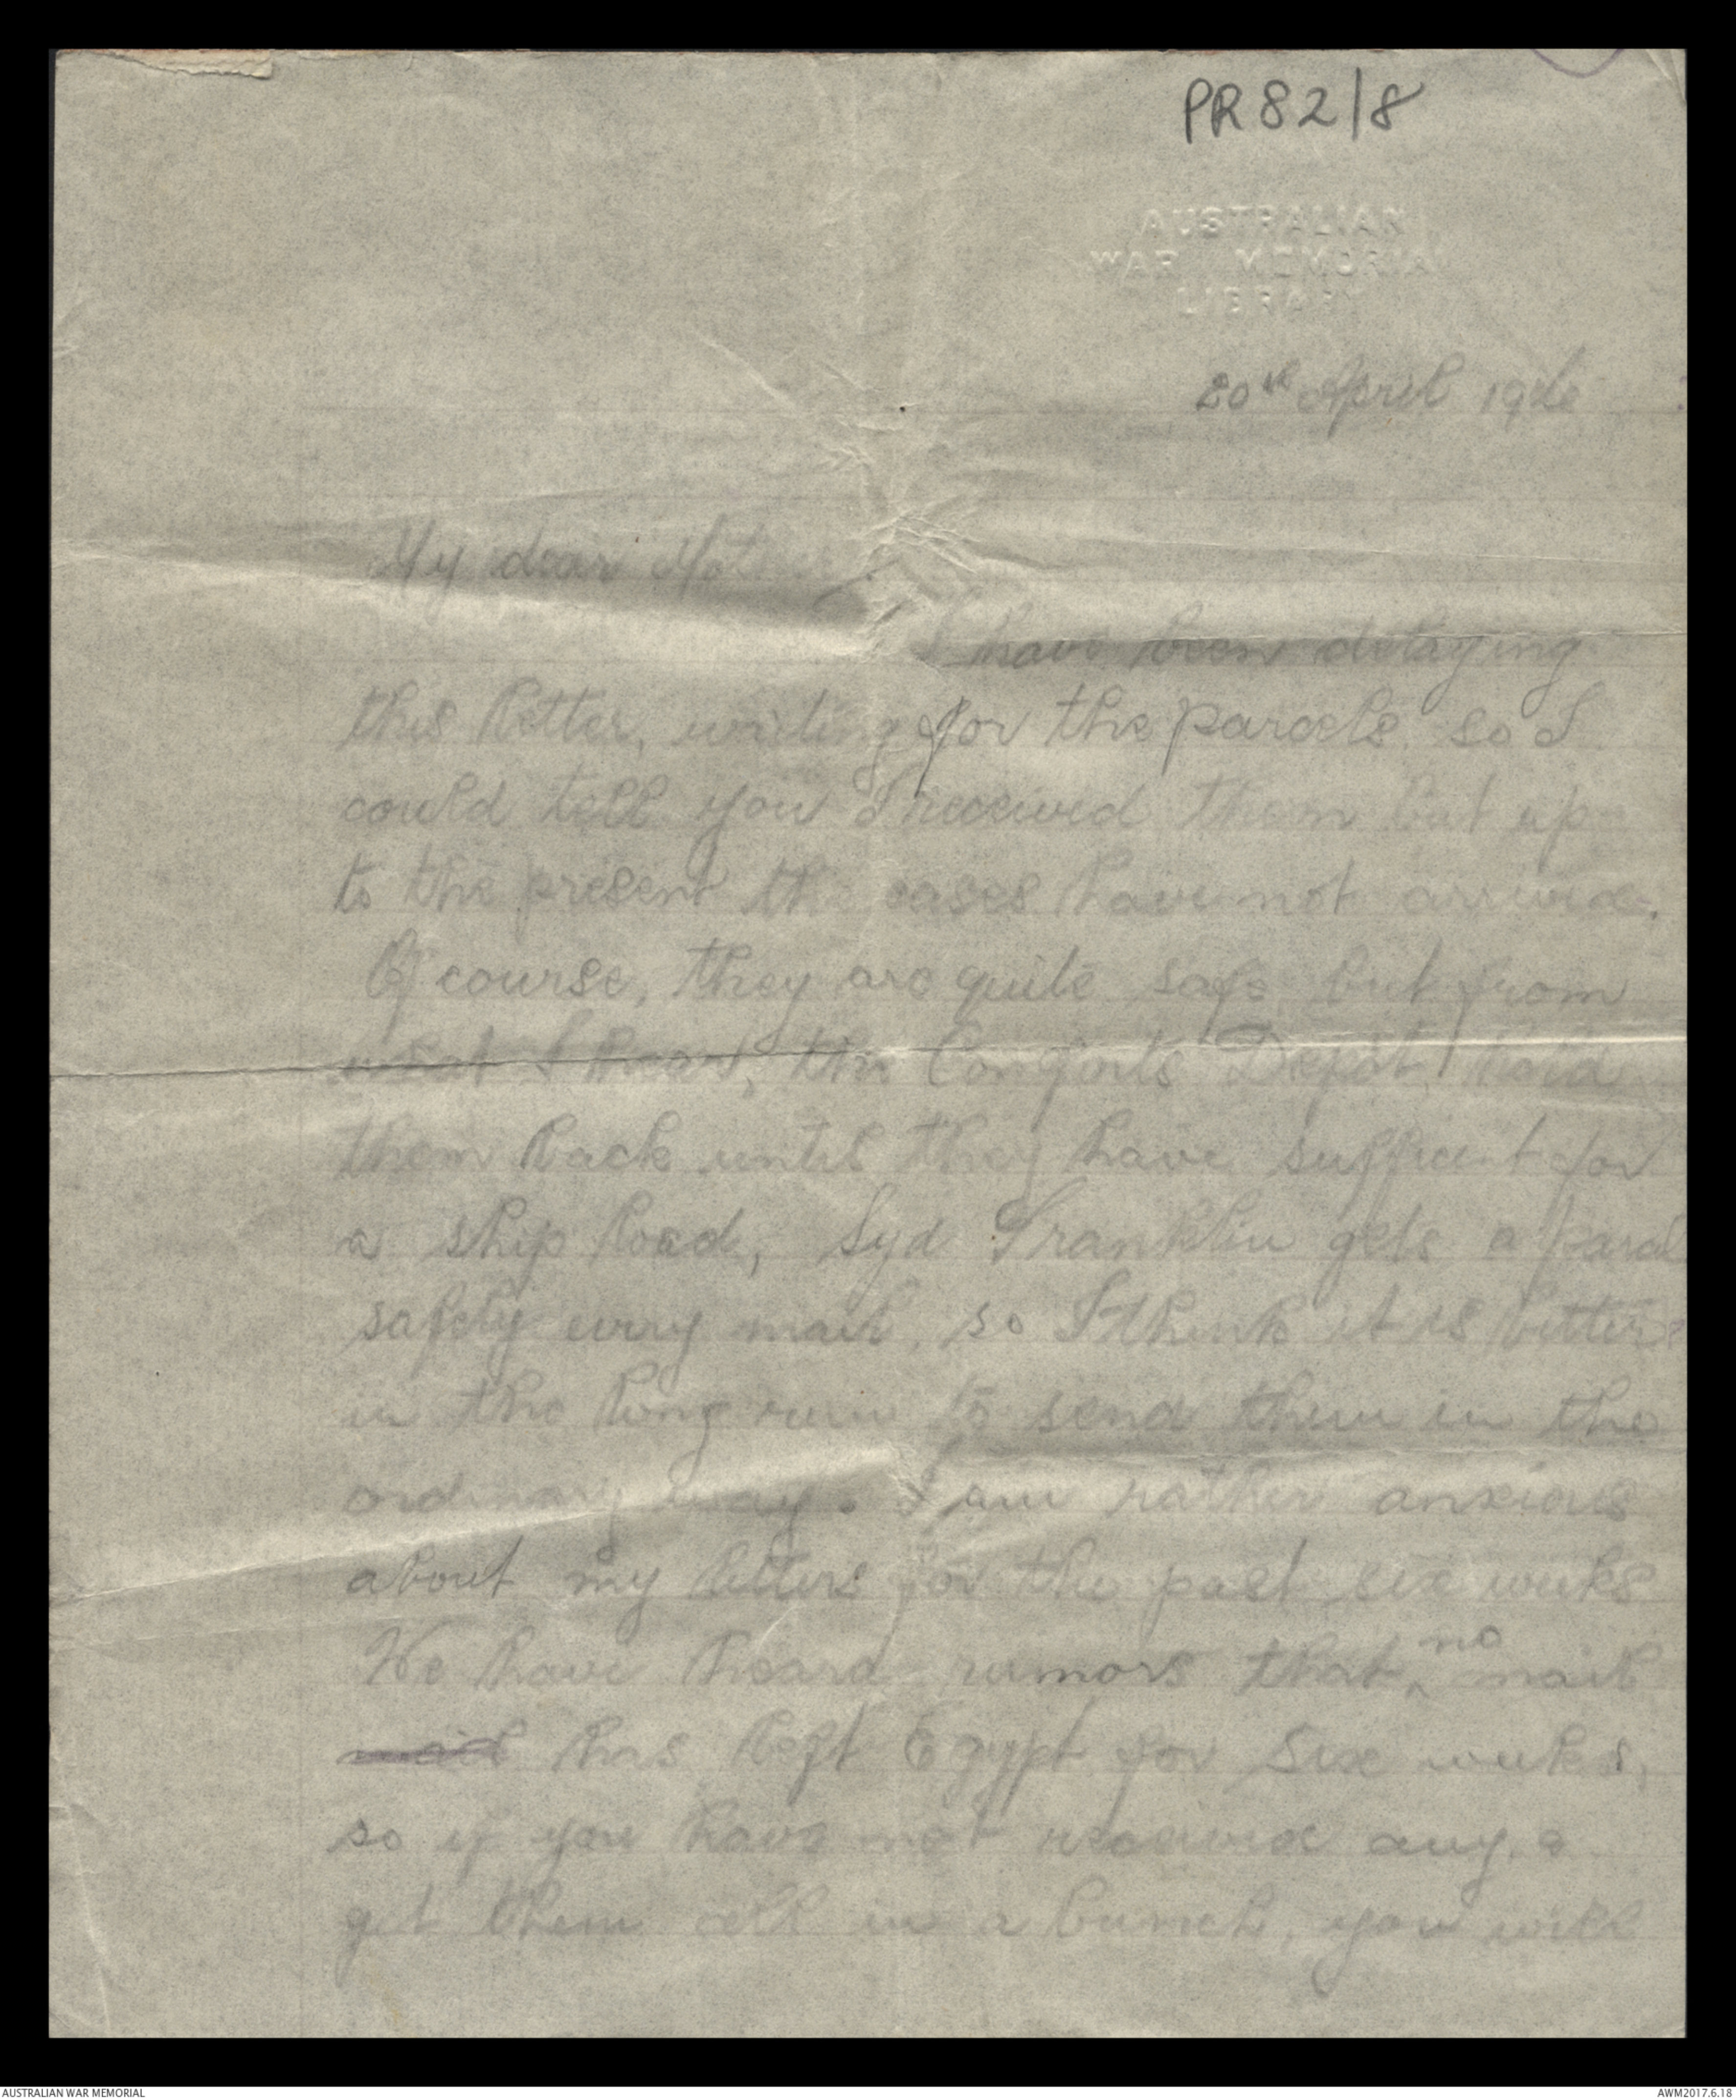 PR82/8
AUSTRALIAN
WAR MEMORIAL
LIBRARY
20th April
My dear Mot
I have been delaying
this letter, waiting for the parcels, so I
could tell you I received them but up
to the present the cases have not arrived.
Of course, they are quite safe but from
what I hear, the Comforts Depot, hold
them back until they have sufficient for
a ship load, Syd Franklin gets a parcel
safely every mail, so I think it is better
in the long run to send them in the
ordinary way. I am rather anxious
about my letters for the past six weeks
We have heard rumors that ^no mail
mail has left Egypt for six weeks,
so if you have not received any &
get them all in a bunch, you will
AUSTRALIAN WAR MEMORIAL
AWM2017.6.18